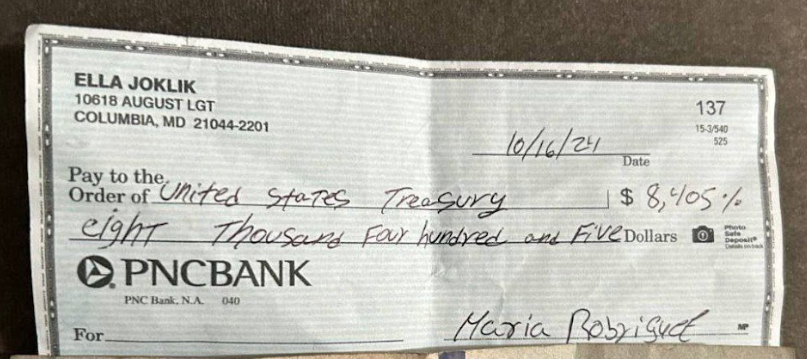 ELLA JOKLIK
10618 AUGUST LGT
COLUMBIA, MD 21044-2201
137
15-3/540
525
10/16/24
Date
Pay to the
Order of United States Treasury $ 8,405%
eight Thousand Four hundred and Five Dollars
Photo
Safe
Deposit®
Details on back
PNCBANK
PNC Bank, N.A. 040
For
Maria Rodriguez
MP